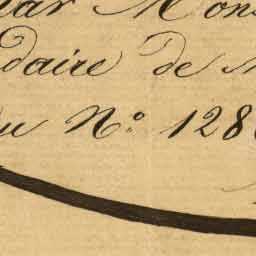 par Mons
daire de
du N.º 128